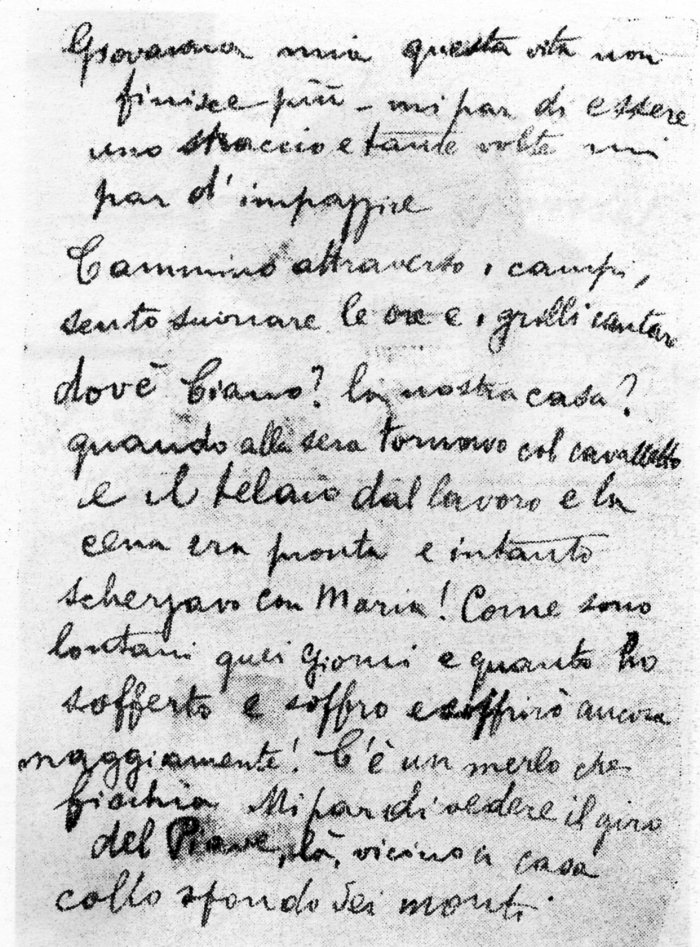 Giovanna mia questa vita non
finisce più - mi par di essere
uno straccio e tante volte mi
par d'impazzire
Cammino attraverso i campi,
sento suonare le ore e i grilli cantar
dov'è Ciano? la nostra casa?
quando alla sera tornavo col cavalletto
e il telaio dal lavoro e la
cena era pronta e intanto
scherzavo con Maria! Come sono
lontani quei giorni e quanto ho
sofferto e soffro e soffrirò ancora
maggiamente! C'è un merlo che
fischia Mi par di vedere il giro
del Piave, là, vicino a casa
collo sfondo dei monti.